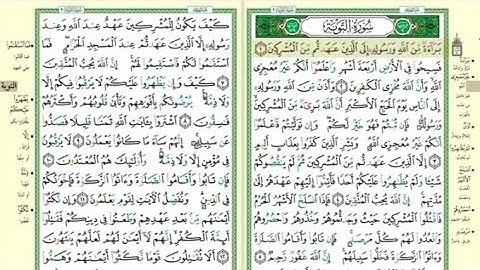 سُورَةُ التَّوْبَةِ
بَرَآءَةٌ مِّنَ ٱللَّهِ وَرَسُولِهِۦٓ إِلَى ٱلَّذِينَ عَٰهَدتُّم مِّنَ ٱلْمُشْرِكِينَ
فَسِيحُوا۟ فِى ٱلْأَرْضِ أَرْبَعَةَ أَشْهُرٍ وَٱعْلَمُوٓا۟ أَنَّكُمْ غَيْرُ مُعْجِزِى
ٱللَّهِ وَأَنَّ ٱللَّهَ مُخْزِى ٱلْكَٰفِرِينَ وَأَذَٰنٌ مِّنَ ٱللَّهِ وَرَسُولِهِۦٓ
إِلَى ٱلنَّاسِ يَوْمَ ٱلْحَجِّ ٱلْأَكْبَرِ أَنَّ ٱللَّهَ بَرِىٓءٌ مِّنَ ٱلْمُشْرِكِينَ
وَرَسُولُهُۥ فَإِن تُبْتُمْ فَهُوَ خَيْرٌ لَّكُمْ وَإِن تَوَلَّيْتُمْ فَٱعْلَمُوٓا۟
أَنَّكُمْ غَيْرُ مُعْجِزِى ٱللَّهِ وَبَشِّرِ ٱلَّذِينَ كَفَرُوا۟ بِعَذَابٍ أَلِيمٍ
إِلَّا ٱلَّذِينَ عَٰهَدتُّم مِّنَ ٱلْمُشْرِكِينَ ثُمَّ لَمْ يَنقُصُوكُمْ
شَيْـًٔا وَلَمْ يُظَٰهِرُوا۟ عَلَيْكُمْ أَحَدًا فَأَتِمُّوٓا۟ إِلَيْهِمْ عَهْدَهُمْ إِلَىٰ
مُدَّتِهِمْ إِنَّ ٱللَّهَ يُحِبُّ ٱلْمُتَّقِينَ فَإِذَا ٱنسَلَخَ ٱلْأَشْهُرُ ٱلْحُرُمُ
فَٱقْتُلُوا۟ ٱلْمُشْرِكِينَ حَيْثُ وَجَدتُّمُوهُمْ وَخُذُوهُمْ وَٱحْصُرُوهُمْ
وَٱقْعُدُوا۟ لَهُمْ كُلَّ مَرْصَدٍ فَإِن تَابُوا۟ وَأَقَامُوا۟ ٱلصَّلَوٰةَ
وَءَاتَوُا۟ ٱلزَّكَوٰةَ فَخَلُّوا۟ سَبِيلَهُمْ إِنَّ ٱللَّهَ غَفُورٌ رَّحِيمٌ
كَيْفَ يَكُونُ لِلْمُشْرِكِينَ عَهْدٌ عِندَ ٱللَّهِ وَعِندَ
رَسُولِهِۦٓ إِلَّا ٱلَّذِينَ عَٰهَدتُّمْ عِندَ ٱلْمَسْجِدِ ٱلْحَرَامِ
كَيْفَ وَإِن يَظْهَرُوا۟ عَلَيْكُمْ لَا يَرْقُبُوا۟ فِيكُمْ إِلًّا
وَلَا ذِمَّةً يُرْضُونَكُم بِأَفْوَٰهِهِمْ وَتَأْبَىٰ قُلُوبُهُمْ وَأَكْثَرُهُمْ
فَٰسِقُونَ ٱشْتَرَوْا۟ بِـَٔايَٰتِ ٱللَّهِ ثَمَنًا قَلِيلًا فَصَدُّوا۟
عَن سَبِيلِهِۦٓ إِنَّهُمْ سَآءَ مَا كَانُوا۟ يَعْمَلُونَ لَا يَرْقُبُونَ
فِى مُؤْمِنٍ إِلًّا وَلَا ذِمَّةً وَأُو۟لَٰٓئِكَ هُمُ ٱلْمُعْتَدُونَ
فَإِن تَابُوا۟ وَأَقَامُوا۟ ٱلصَّلَوٰةَ وَءَاتَوُا۟ ٱلزَّكَوٰةَ فَإِخْوَٰنُكُمْ
فِى ٱلدِّينِ وَنُفَصِّلُ ٱلْـَٔايَٰتِ لِقَوْمٍ يَعْلَمُونَ وَإِن نَّكَثُوٓا۟
أَيْمَٰنَهُم مِّنۢ بَعْدِ عَهْدِهِمْ وَطَعَنُوا۟ فِى دِينِكُمْ فَقَٰتِلُوٓا۟
أَئِمَّةَ ٱلْكُفْرِ إِنَّهُمْ لَآ أَيْمَٰنَ لَهُمْ لَعَلَّهُمْ يَنتَهُونَ
أَلَا تُقَٰتِلُونَ قَوْمًا نَّكَثُوٓا۟ أَيْمَٰنَهُمْ
التوبة